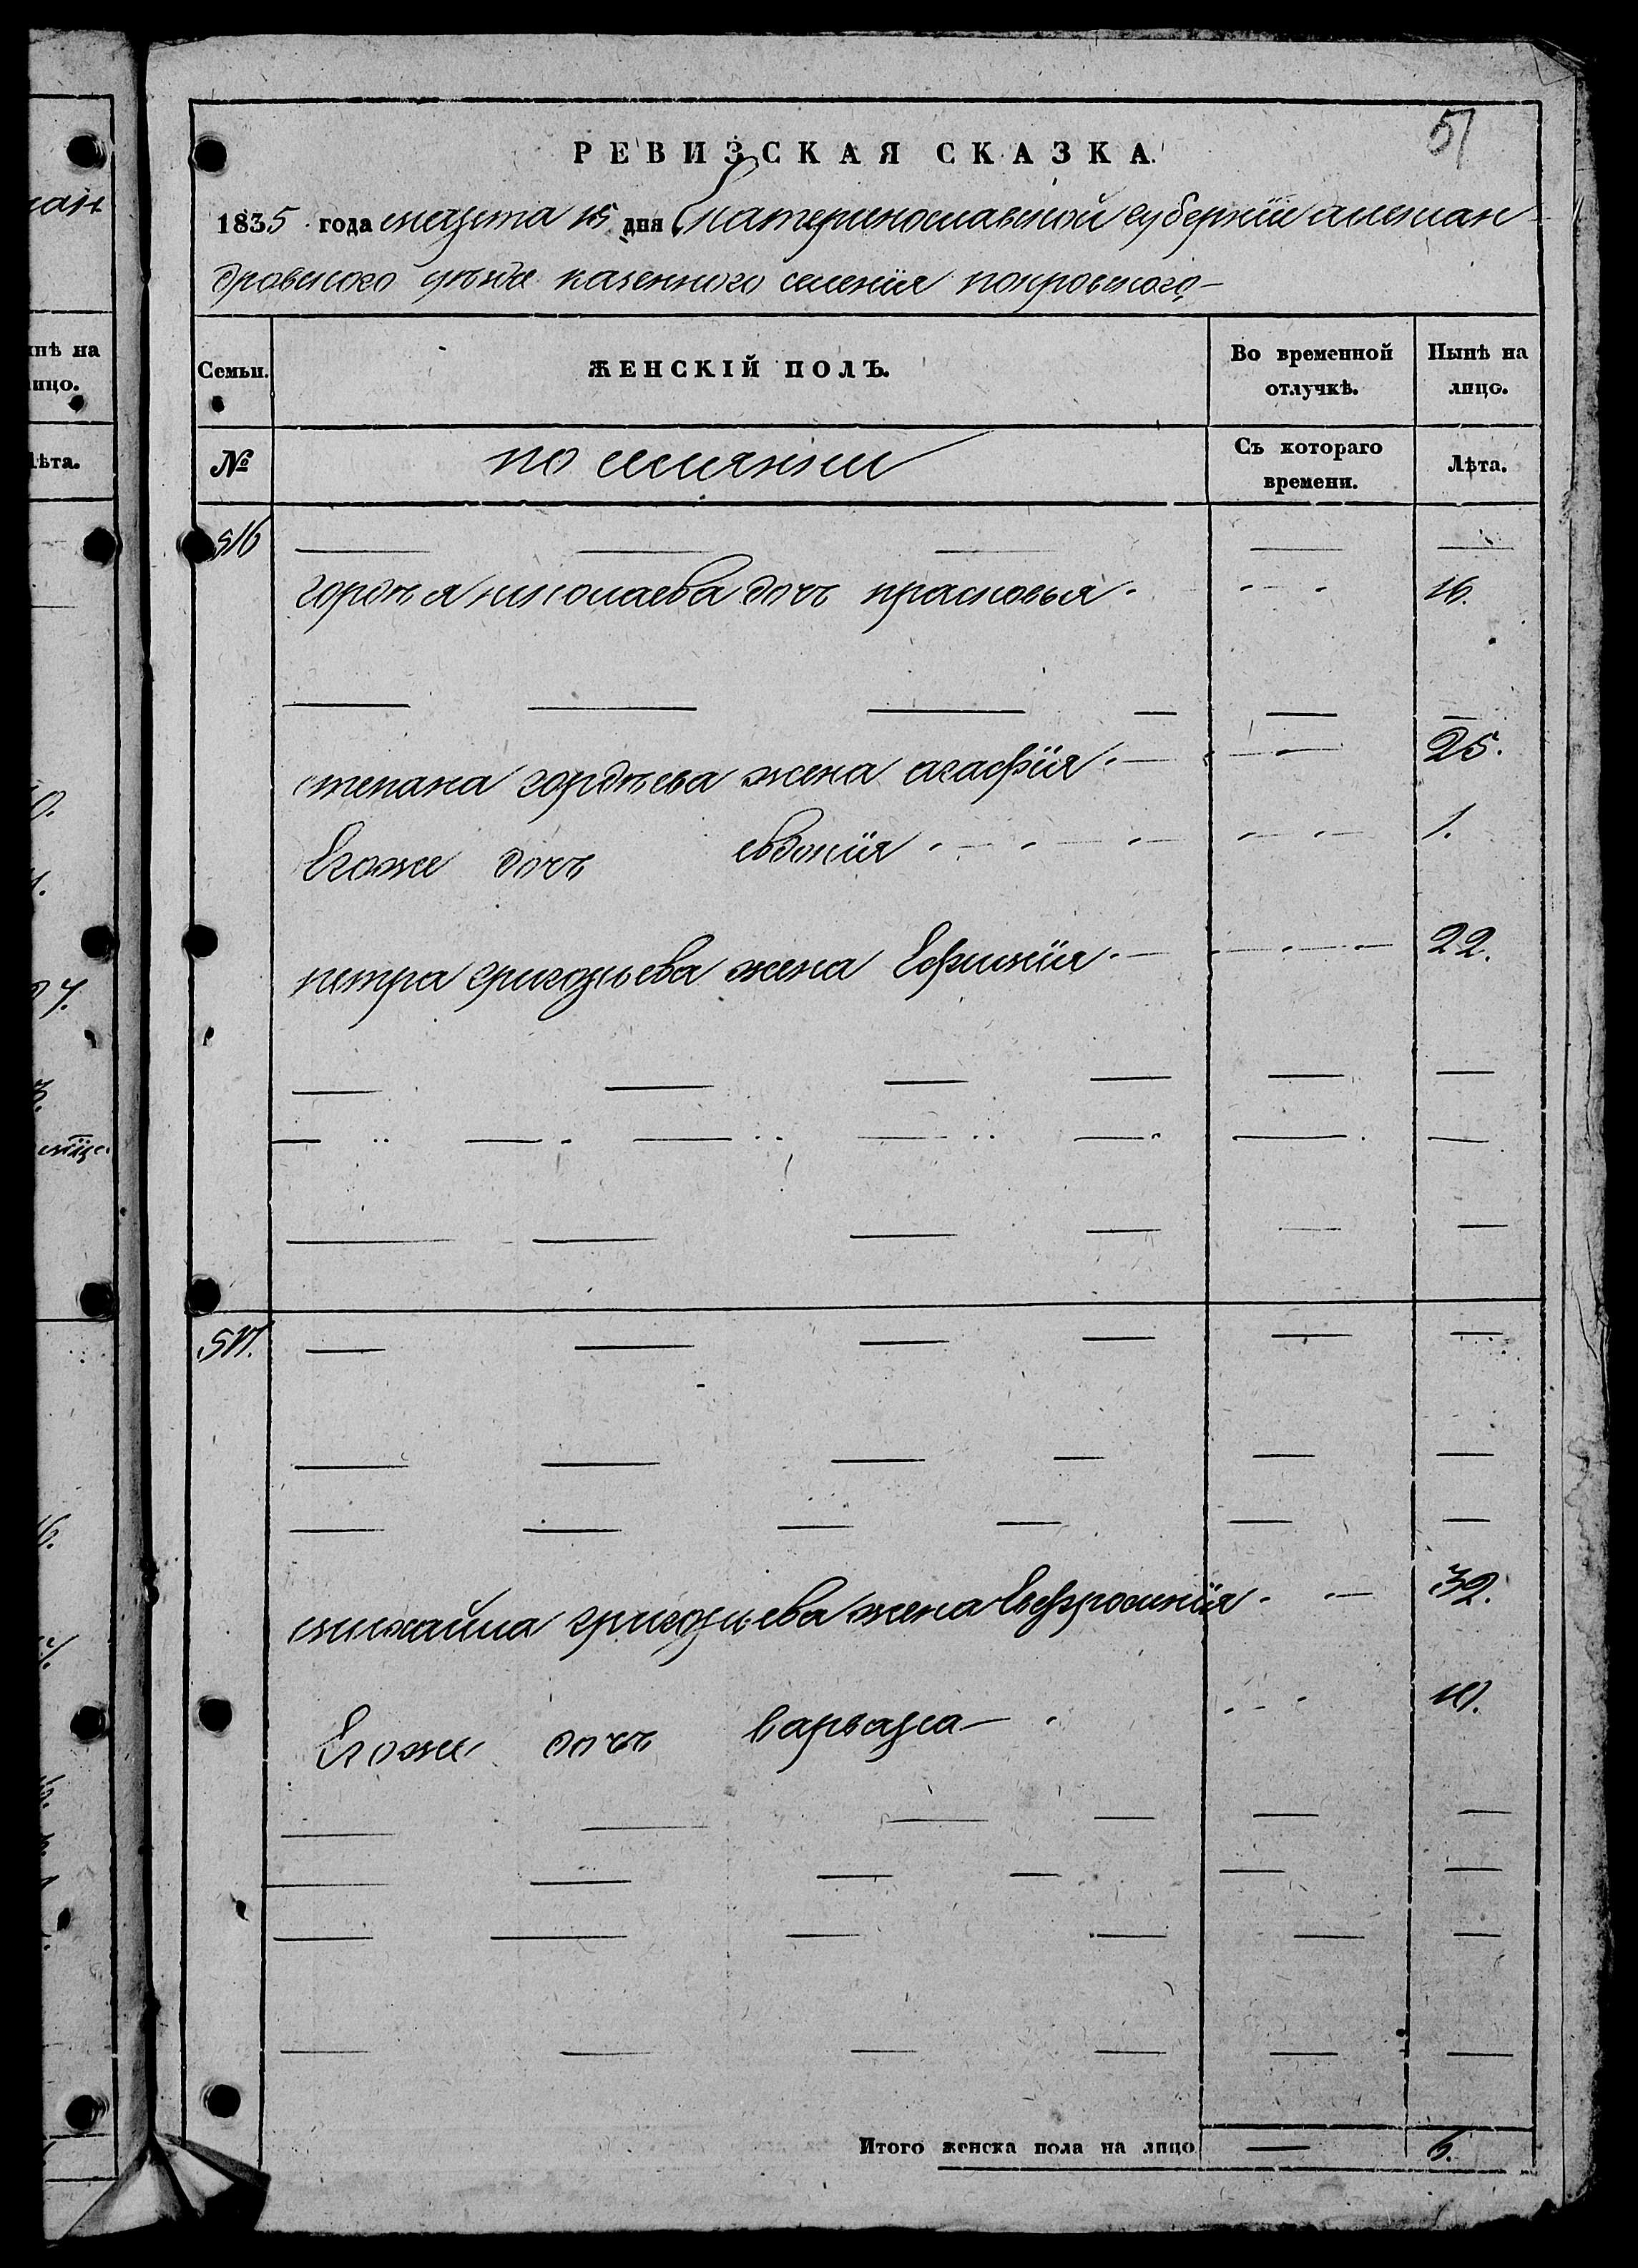 51
РЕВИЗСКАЯ СКАЗКА.
1835 года марта 15 дня Екатеринославской губернiи алексан-
дровского уѣзда казенного селенiя покровского
Семьи. ЖЕНСКIЙ ПОЛЪ. Во временной отлучкѣ. Нынѣ на лицо.
№ Съ котораго времени. Лѣта.
516
гордѣя николаева дочь прасковья 16.
степана гордѣева жена агафiя 25.
Егоже дочь евдокiя 1.
петра григорьева жена Ефимiя 22.
517.
михайла григорьева жена Евфросинiя 32.
Егоже дочь варвара 10.
Итого женска пола на лицо 6.
нѣ на
ицо.
лѣта.